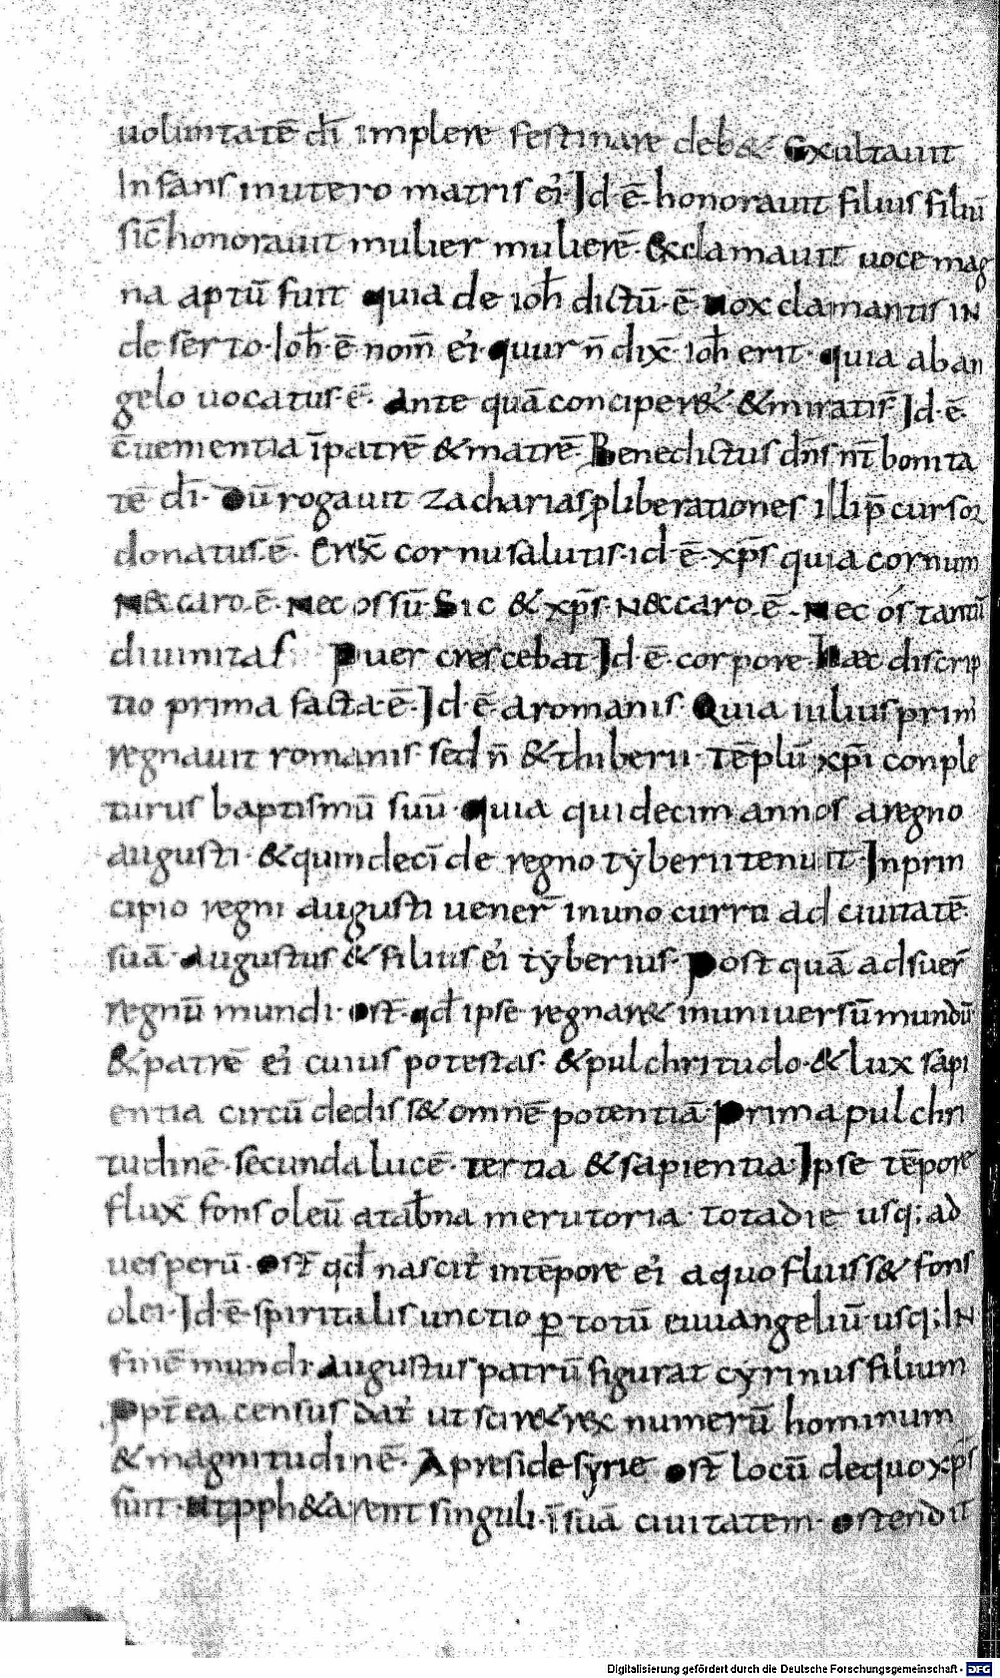 uoluntatē dī implere festinare deb& Exultauit
Infans inutero matris ei᾽ Id ē honorauit filius filiū
sic̄ honorauit mulier mulierē· &clamauit uoce mag
na aptū fuit quia de ioh̄ dictū ē uox clamantis IN
deserto· Ioh̄ ē nom̄ ei᾽ quur n̄ dix̄ ioh̄ erit· quia aban
gelo uocatus· ē· Ante quā conciper&᾽ &miratis̄ Id·ē·
c̄uenientia īpatrē &matrē Benedictus dn̄s nt̄ bonita
tē dī· Dū rogauit zacharias ꝓliberationes illi p̄cursor
donatus·ē· Erex̄ cornusalutis·id ē·xp̄s quia cornum
N& caro·ē· Nec os sū· Sic & xp̄s· N&caro·ē· Nec ós tantū
diuinitas Puer crescebat Id·ē·corpore· Haec discrip
tio prima facta·ē· Id·ē aromanis· Quia iulius prim᾽
regnauit romanis· sed n̄ &thiberii· Tēplū xp̄i conple
turus baptismū suū· quia quidecim annos aregno
augusti· &quindecī de regno tyberii tenuit· Inprin
cipio regni augusti uener̄ inuno curru ad ciuitatē·
suā· augustus & filius ei᾽ tyberius· Post quā adsuer̄
regnū mundi· ost̄·qd̄ ipse regnar& inuniuersū mundū
&patrē ei᾽ cuius potestas· &pulchritudo·&lux sapi
entia circū dedis s& omnē potentiā· Prima pulchri
tudinē· secunda lucē· tertia &sapientia· Ipse tēpore
flux̄ fons oleū atab̄na merutoria· totadie usq; ad
uesperū· ost̄ qd̄ nascit᾽ intēpore ei᾽ aquo fluiss& fons
olei· Id·ē·spiritalis unctio ꝑ totū euuangeliū·usq; IN
finē mundi· augustus patrū figurat cyrinus filium
Ppt̄ea census dat᾽ ut scir& rex numerū hominum
&magnitudinē· Apreside syrie ost̄ locū dequo xp̄s
fuit· Utpph&arent singuli· īsuā ciuitatem· ostendit